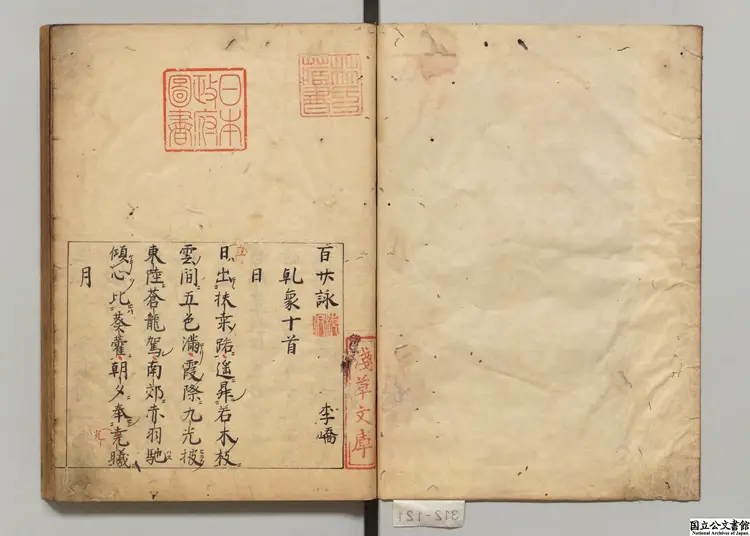 林氏藏書
日本政府圖書
淺草文庫
百廿詠 李嶠
乹象十首
日
日出扶桒路遥昇若木枝
雲間五色滿霞際九光披
東陸蒼龍駕南郊亦羽馳
傾心比葵藿朝夕奉堯曦
月
312-121
国立公文書館
National Archives of Japan